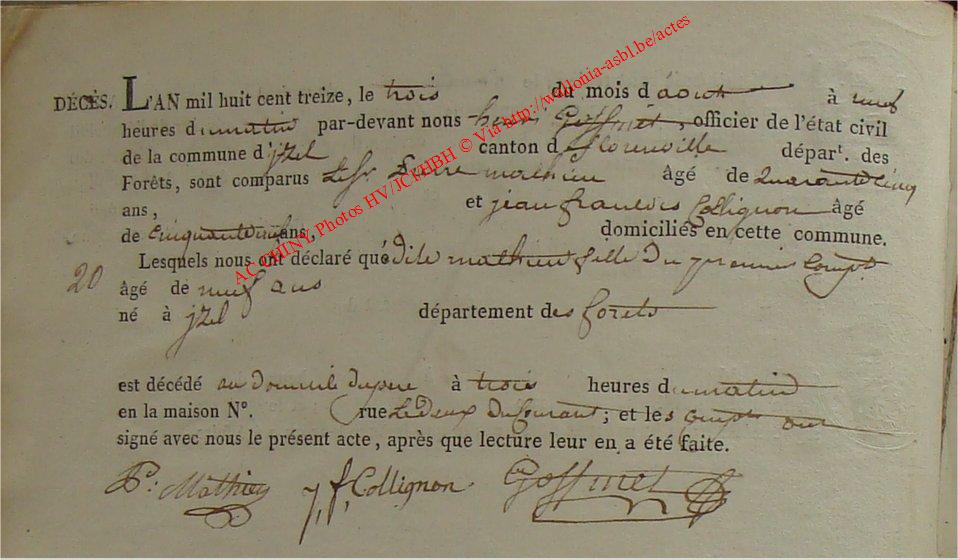 DÉCÈS. L'AN mil huit cent treize, le trois du mois d'aout à neuf
heures du matin par-devant nous henri Goffinet, officier de l'état civil
de la commune d'jzel canton de florenville départ. des
Forêts, sont comparus Le Sr. pierre mathieu âgé de quarante cinq
ans, et jean françois Collignon âgé
de Cinquante neuf ans, domiciliés en cette commune.
Lesquels nous ont déclaré que dile mathieu fille du premier Compt.
20
âgé de neuf ans
né à jzel département des forets
est décédé au domicile du pere à trois heures du matin
en la maison N°. rue Le deux du Courant; et les Compts. ont
signé avec nous le présent acte, après que lecture leur en a été faite.
P. Mathieu j. f. Collignon Goffinet
ACCHINY Photos HV/JCI/HBH © Via http://wallonia-asbl.be/actes